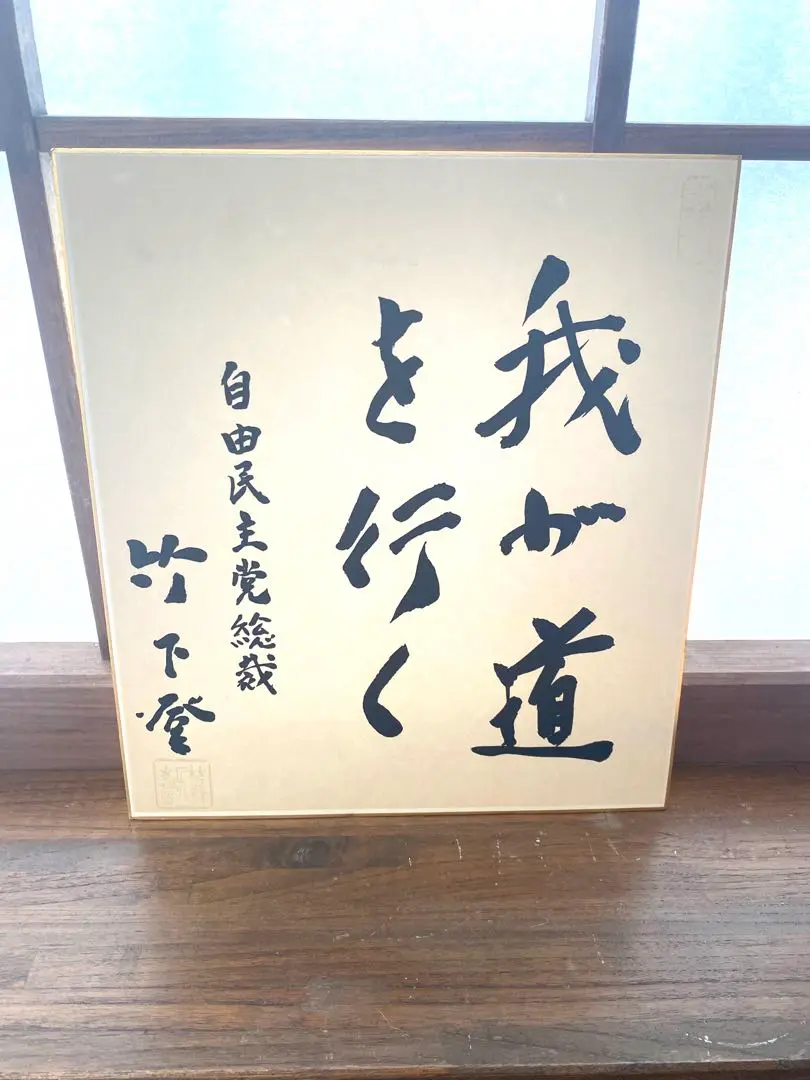 我が道
を行く
自由民主党総裁
竹下登